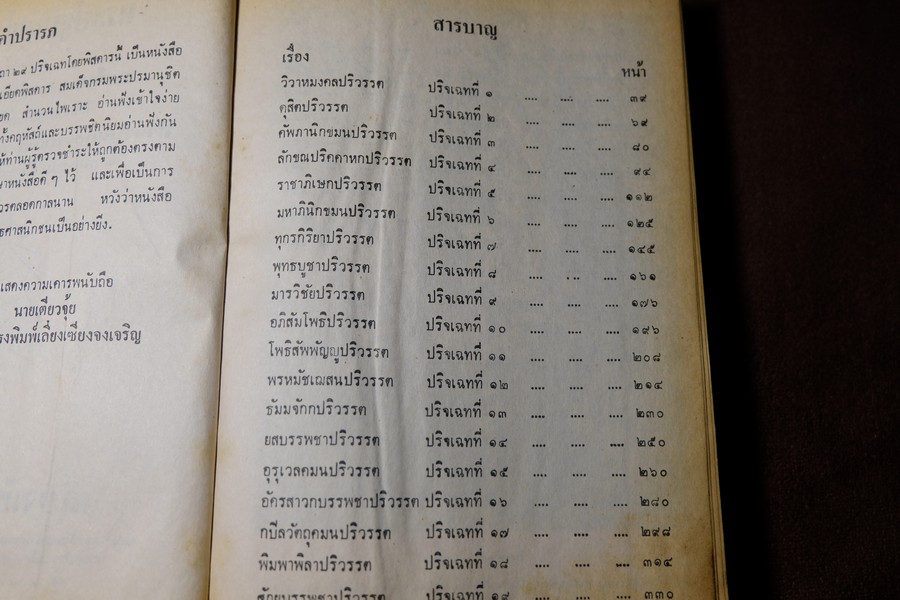 คำปรารภ
๒๙ ปริจเฉทโดยพิสดารนี้ เป็นหนังสือ
สมเด็จกรมพระปรมานุชิต
สำนวนไพเราะ อ่านฟังเข้าใจง่าย
ทั้งคฤหัสถ์และบรรพชิตนิยมอ่านฟังกัน
ให้ท่านผู้รู้ตรวจชำระให้ถูกต้องตรงตาม
หนังสือดี ๆ ไว้ และเพื่อเป็นการ
ตลอดกาลนาน หวังว่าหนังสือ
ศาสนิกชนเป็นอย่างยิ่ง.
แสดงความเคารพนับถือ
นายเตี่ยวจุ้ย
โรงพิมพ์เลี่ยงเซียงจงเจริญ
สารบาญ
เรื่อง หน้า
วิวาหมงคลปริวรรต ปริจเฉทที่ ๑ .... .... .... ๓๙
ดุสิตปริวรรต ปริจเฉทที่ ๒ .... .... .... ๖๙
คัพภานิกขมนปริวรรต ปริจเฉทที่ ๓ .... .... .... ๘๐
ลักขณปริคคาหกปริวรรต ปริจเฉทที่ ๔ .... .... .... ๙๔
ราชาภิเษกปริวรรต ปริจเฉทที่ ๕ .... .... .... ๑๑๒
มหาภินิกขมนปริวรรต ปริจเฉทที่ ๖ .... .... .... ๑๒๕
ทุกรกิริยาปริวรรต ปริจเฉทที่ ๗ .... .... .... ๑๔๕
พุทธบูชาปริวรรต ปริจเฉทที่ ๘ .... .... .... ๑๖๑
มารวิชัยปริวรรต ปริจเฉทที่ ๙ .... .... .... ๑๗๖
อภิสัมโพธิปริวรรต ปริจเฉทที่ ๑๐ .... .... .... ๑๙๖
โพธิสัพพัญญูปริวรรต ปริจเฉทที่ ๑๑ .... .... .... ๒๐๘
พรหมัชเฌสนปริวรรต ปริจเฉทที่ ๑๒ .... .... .... ๒๑๔
ธัมมจักกปริวรรต ปริจเฉทที่ ๑๓ .... .... .... ๒๓๐
ยสบรรพชาปริวรรต ปริจเฉทที่ ๑๔ .... .... .... ๒๕๐
อุรุเวลคมนปริวรรต ปริจเฉทที่ ๑๕ .... .... .... ๒๖๐
อัครสาวกบรรพชาปริวรรต ปริจเฉทที่ ๑๖ .... .... .... ๒๘๐
กบิลวัตถุคมนปริวรรต ปริจเฉทที่ ๑๗ .... .... .... ๒๙๘
พิมพาพิลาปริวรรต ปริจเฉทที่ ๑๘ .... .... .... ๓๑๔
ศักยบรรพชาปริวรรต ปริจเฉทที่ ๑๙ .... .... .... ๓๓๐